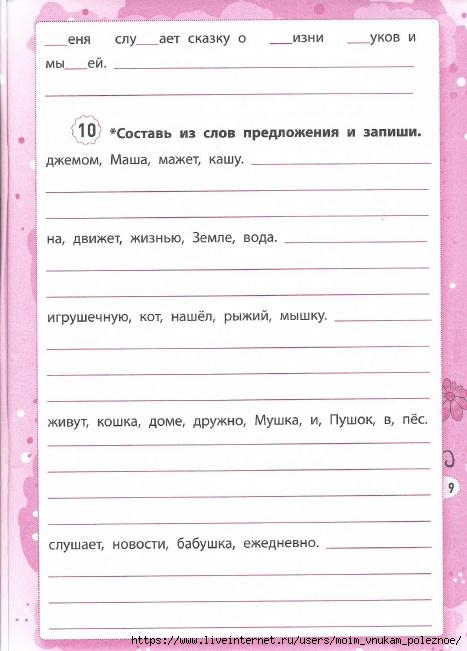 ___еня слу___ает сказку о ___изни ___уков и
мы___ей.
10 *Составь из слов предложения и запиши.
джемом, Маша, мажет, кашу.
на, движет, жизнью, Земле, вода.
игрушечную, кот, нашёл, рыжий, мышку.
живут, кошка, доме, дружно, Мушка, и, Пушок, в, пёс.
9
слушает, новости, бабушка, ежедневно.
https://www.liveinternet.ru/users/moim_vnukam_poleznoe/